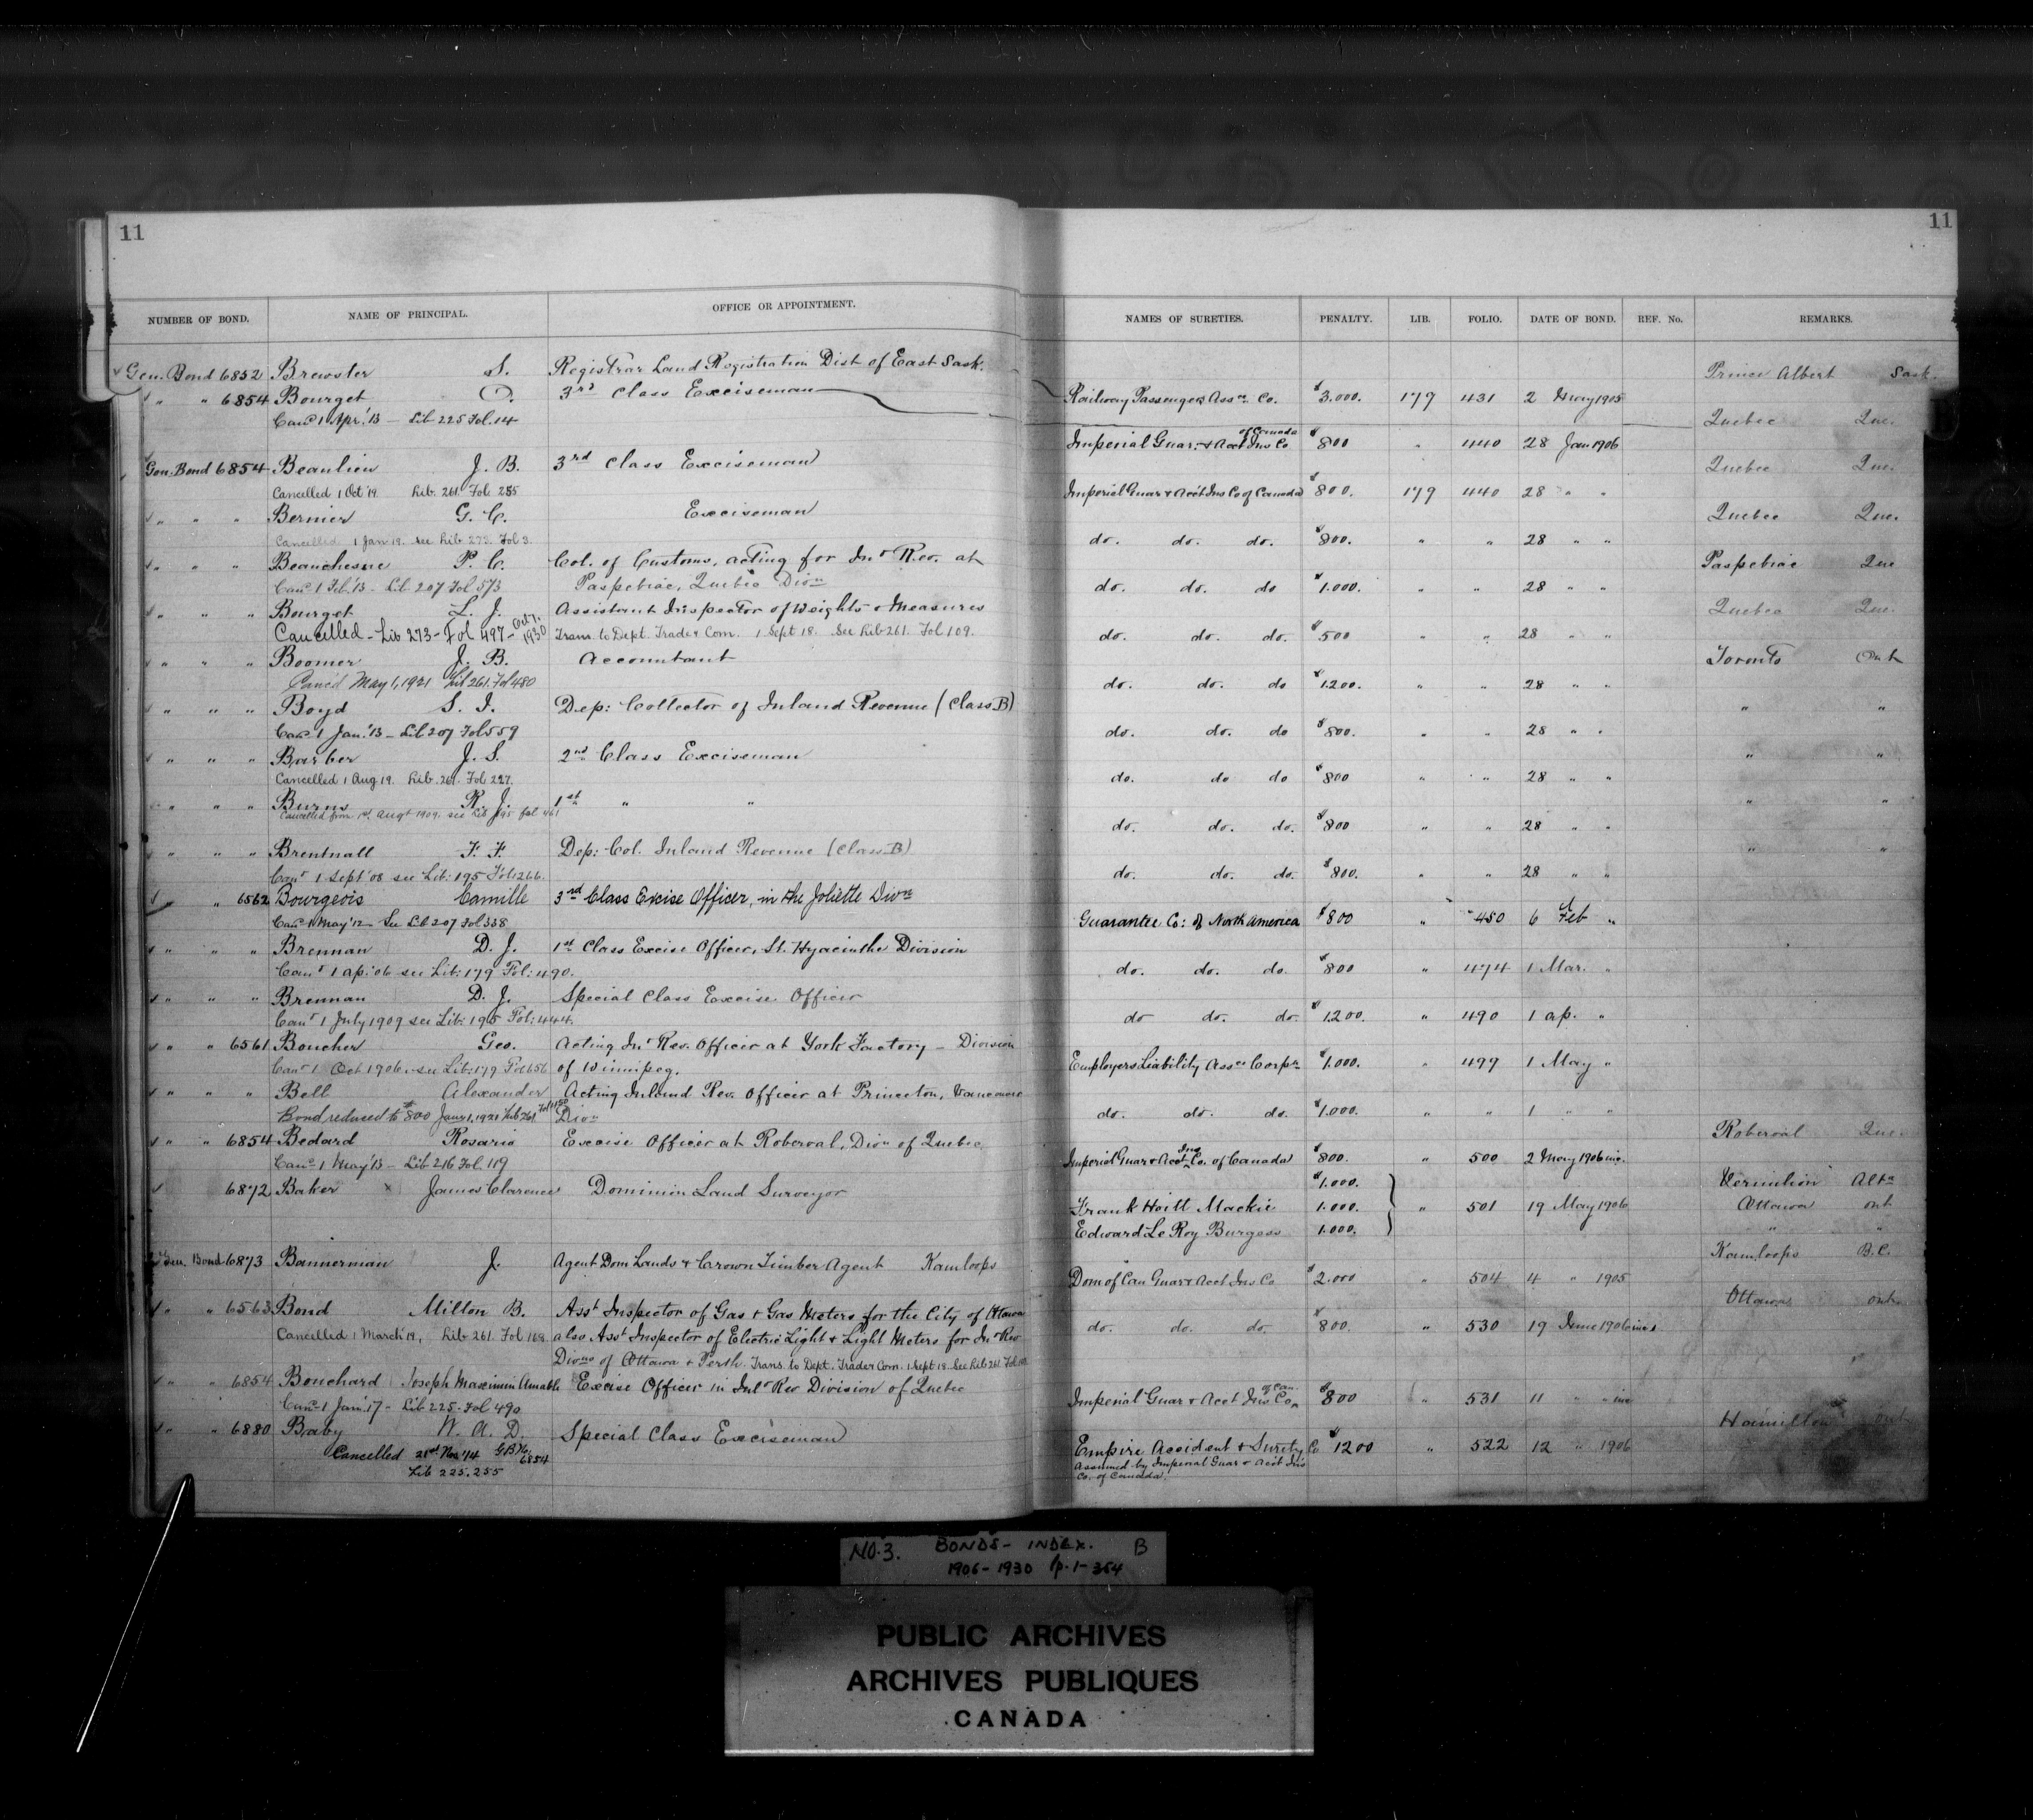 11
NUMBER OF BOND. NAME OF PRINCIPAL. OFFICE OR APPOINTMENT.
Gen. Bond 6852 Brewster S. Registrar Land Registration Dist of East Sask.
" " 6854 Bourget O. 3rd Class Exciseman
Cancd 1 Apr. '13 - Lib 225 Fol. 14
Gen. Bond 6854 Beaulieu J. B. 3rd Class Exciseman
Cancelled 1 Oct '19. Lib. 261. Fol. 255
" " " Bernier G. C. Exciseman
Cancelled 1 Jan 19. see Lib. 273. Fol 3.
" " " Beauchesne P. C. Col. of Customs, acting for Inr Rev. at
Cancd 1 Feb. '13 - Lib 207 Fol 573 Paspebiac, Quebec Divn
" " " Bourget L. J. Assistant Inspector of Weights & Measures
Cancelled - Lib 273 - Fol 497 - Oct 7. 1930 Trans. to Dept. Trade & Com. 1 Sept 18. See Lib 261. Fol 109.
" " " Boomer J. B. Accountant
Canc'd May 1, 1921 Lib 261. Fol 480
" " " Boyd S. I. Dep: Collector of Inland Revenue (Class B)
Cancd 1 Jan. '13 - Lib 207 Fol 559
" " " Barber J. S. 2nd Class Exciseman
Cancelled 1 Aug 19. Lib. 261. Fol 227.
" " " Burns R. J. 1st " "
Cancelled from 1st Augt 1909. see Lib 195 fol 461
" " " Brentnall F. F. Dep: Col. Inland Revenue (Class B)
Cand 1 Sept '08 see Lib: 195 Fol: 266.
" " 6562 Bourgeois Camille 3rd Class Excise Officer, in the Joliette Divn
Cancd 1 May '12 - See Lib 207 Fol 338
" " " Brennan D. J. 1st Class Excise Officer, St. Hyacinthe Division
Cand 1 ap. '06 see Lib: 179 Fol: 490.
" " " Brennan D. J. Special Class Excise Officer
Cand 1 July 1909 see Lib: 195 Fol: 444.
" " 6561 Boucher Geo. Acting Inr Rev. Officer at York Factory - Division
Cand 1 Oct 1906. see Lib: 179 Fol 656 of Winnipeg.
" " " Bell Alexander Acting Inland Rev. Officer at Princeton, Vancouver
Bond reduced to $800 Jany 1, 1921 Lib 261 Divn
" " 6854 Bedard Rosario Excise Officer at Roberval, Divn of Quebec
Cancd 1 May '13 - Lib 216 Fol. 119
6872 Baker x James Clarence Dominion Land Surveyor
Gen. Bond 6873 Bannerman J. Agent Dom Lands & Crown Timber Agent Kamloops
" " 6563 Bond Milton B. Asst Inspector of Gas & Gas Meters for the City of Ottawa
Cancelled 1 March '19, Lib 261. Fol 168 also Asst Inspector of Electric Light & Light Meters for Inr Rev
Divns of Ottawa & Perth. Trans. to Dept. Trade & Com. 1 Sept 18. See Lib 261. Fol
" " 6854 Bouchard Joseph Maximin Amable Excise Officer in Inld Rev Division of Quebec
Cancd 1 Jan. 17 - Lib 225. Fol 490
" " 6880 Baby W. A. D. Special Class Exciseman
Cancelled 21st Nov. '14 G.B. No. 6854
Lib 225. 255
11
NAMES OF SURETIES. PENALTY. LIB. FOLIO. DATE OF BOND. REF. No. REMARKS.
Prince Albert Sask.
Railway Passengers Assce Co. $3.000. 179 431 2 May 1905
Quebec Que.
Imperial Guar. & Acct Ins Co of Canada $800 " 440 28 Jan 1906
Quebec Que.
Imperial Guar & Acct Ins Co of Canada $800. 179 440 28 " "
Quebec Que.
do. do. do. $800. " " 28 " "
Paspebiac Que
do. do. do $1.000. " " 28 " "
Quebec Que.
do. do. do. $500 " " 28 " "
Toronto Ont
do. do. do $1200. " " 28 " "
" "
do. do. do $800. " " 28 " "
" "
do. do do $800 " " 28 " "
" "
do. do. do. $800 " " 28 " "
" "
do. do. do. $800. " " 28 " "
Guarantee Co: of North America $800 " 450 6 Feb "
do. do. do. $800 " 474 1 Mar. "
do do. do. $1200. " 490 1 ap. "
Employers Liability Assce Corpn $1.000. " 499 1 May "
do. do. do. $1.000. " " 1 " "
Roberval Que.
Imperial Guar & Acct Ins Co. of Canada $800. " 500 2 May 1906
$1.000. Vermilion Alta
Frank Hoitt Mackie 1.000. " 501 19 May 1906 Ottawa ont
Edward Le Roy Burgess 1.000. " "
Kamloops B.C.
Dom of Can Guar & Acct Ins Co $2.000 " 504 4 " 1905
Ottawa ont.
do. do. do. $800. " 530 19 June 1906
Imperial Guar & Acct Ins Co of Can. $800 " 531 11 " "
Hamilton Ont
Empire Accident & Surety Co $1200 " 522 12 " 1906
Assumed by Imperial Guar & Acct Ins
Co. of Canada.
NO. 3. BONDS - INDEX. B
1906 - 1930 p. 1 - 354
PUBLIC ARCHIVES
ARCHIVES PUBLIQUES
CANADA